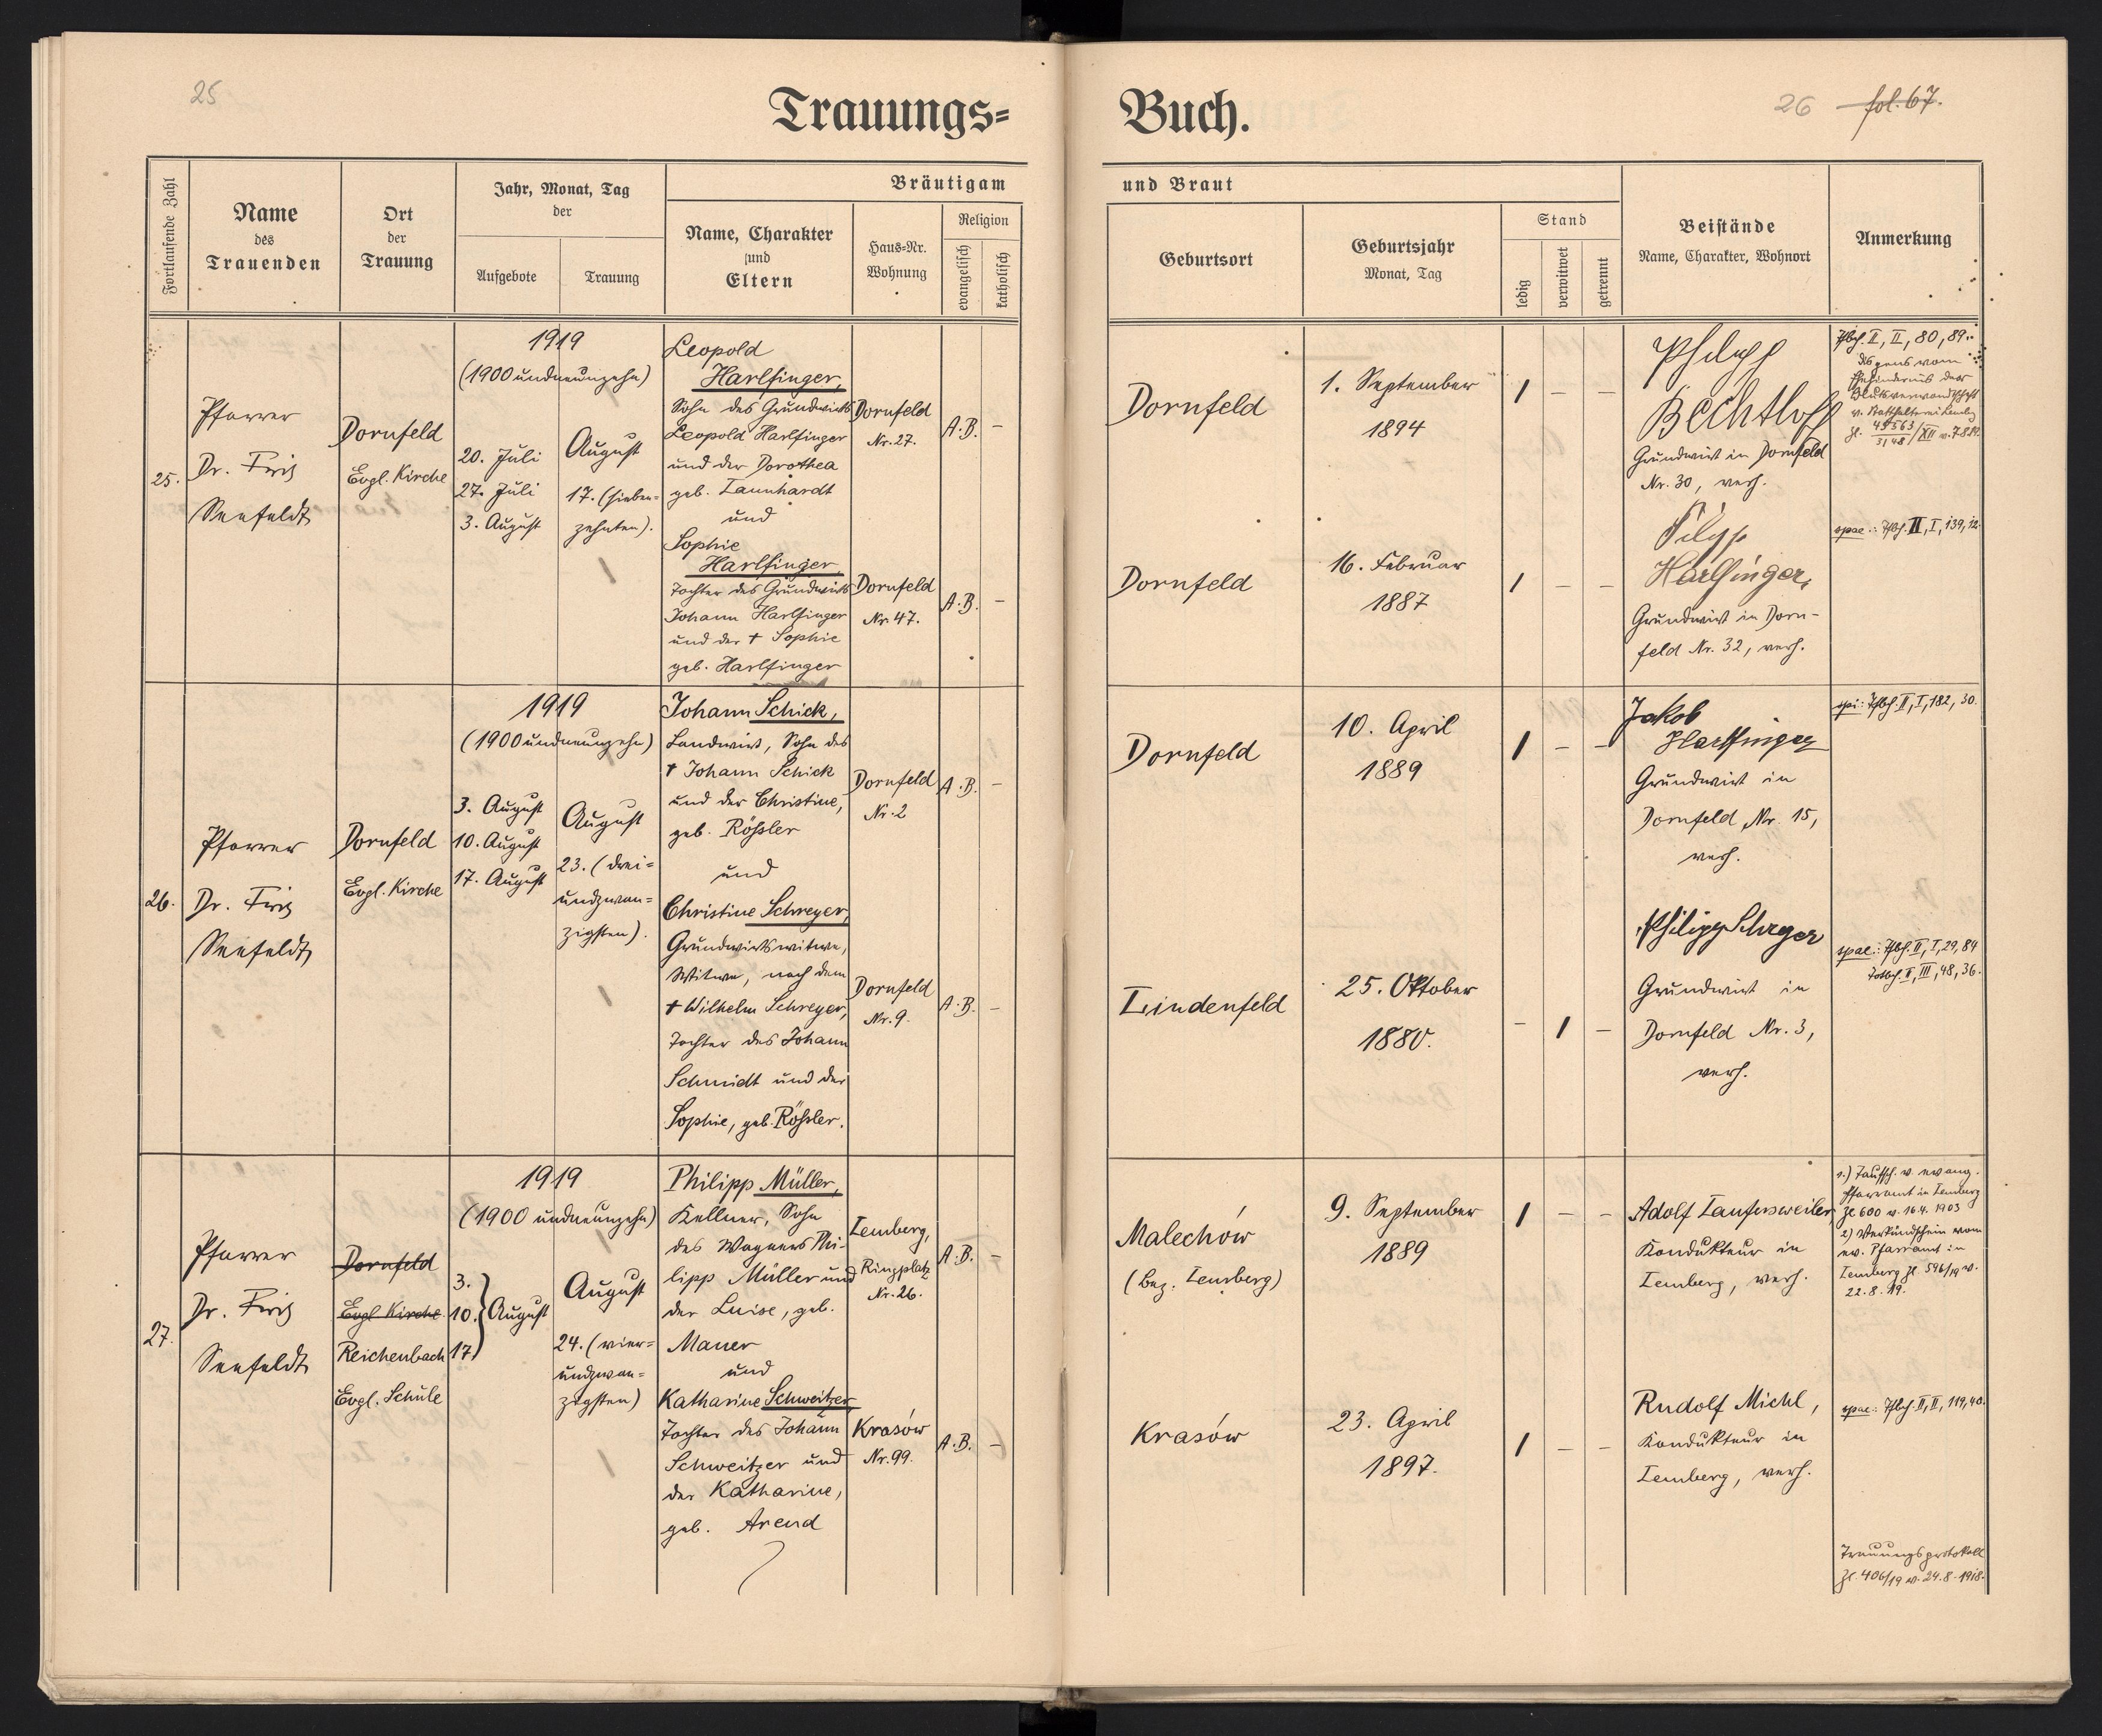 25
Trauungs=
Buch.
26 fol. 67.
Fortlaufende Zahl
Name
des
Trauenden
Ort
der
Trauung
Jahr, Monat, Tag
der
Aufgebote
Trauung
Bräutigam
Name, Charakter
und
Eltern
Haus=Nr.
Wohnung
Religion
evangelisch
katholisch
und Braut
Geburtsort
Geburtsjahr
Monat, Tag
Stand
ledig
verwitwet
getrennt
Beistände
Name, Charakter, Wohnort
Anmerkung
25.
Pfarrer
Dr. Fritz
Seefeldt
Dornfeld
Evgl. Kirche
1919
(1900 undneunzehn)
20. Juli
27. Juli
3. August
August
17. (sieben=
zehnten).
Leopold
Harlfinger,
Sohn des Grundwirts
Leopold Harlfinger
und der Dorothea
geb. Lannhardt
und
Sophie
Harlfinger,
Tochter des Grundwirts
Johann Harlfinger
und der † Sophie
geb. Harlfinger
Dornfeld
Nr. 27.
A.B. –
Dornfeld
Nr. 47.
A.B. –
Dornfeld
1. September
1894
1 – –
Dornfeld
16. Februar
1887
1 – –
Philipp
Bechtloff
Grundwirt in Dornfeld
Nr. 30, verh.
Filipp
Harlfinger,
Grundwirt in Dorn-
feld Nr. 32, verh.
II, II, 80, 89.
Dispens vom
Ehehindernis der
Blutsverwandschaft
v. Statthalterei Lemberg
spae.: Tfbch. II, I, 139, 12.
26.
Pfarrer
Dr. Fritz
Seefeldt
Dornfeld
Evgl. Kirche
1919
(1900 undneunzehn)
3. August
10. August
17. August
August
23. (drei=
undzwan=
zigsten).
Johann Schick,
Landwirt, Sohn des
† Johann Schick
und der Christine,
geb. Rößler
und
Christine Schreyer,
Grundwirtswitwe,
Witwe, nach dem
† Wilhelm Schreyer,
Tochter des Johann
Schmidt und der
Sophie, geb. Rößler.
Dornfeld
Nr. 2
A.B. –
Dornfeld
Nr. 9.
A.B. –
Dornfeld
10. April
1889
1 – –
Lindenfeld
25. Oktober
1880.
– 1 –
Jakob
Harlfinger
Grundwirt in
Dornfeld Nr. 15,
verh.
Philipp Schreyer
Grundwirt in
Dornfeld Nr. 3,
verh.
spi: Tfbch. II, I, 182, 30.
spae.: Tfbch. II, I, 29, 84
Totbch. II, III, 48, 36.
27.
Pfarrer
Dr. Fritz
Seefeldt
Dornfeld
Evgl Kirche
Reichenbach
Evgl. Schule
1919
(1900 undneunzehn)
3.
10. } August
17
August
24. (vier=
undzwan=
zigsten)
Philipp Müller,
Kellner, Sohn
des Wagners Phi-
lipp Müller und
der Luise, geb.
Mauer
und
Katharine Schweitzer,
Tochter des Johann
Schweitzer und
der Katharine,
geb. Arend
Lemberg,
Ringplatz
Nr. 26.
A.B. –
Krasów
Nr. 99.
A.B. –
Malechów
(Bez. Lemberg)
9. September
1889
1 – –
Krasów
23. April
1897.
1 – –
Adolf Laufersweiler,
Kondukteur in
Lemberg, verh.
Rudolf Michl,
Kondukteur in
Lemberg, verh.
1.) Taufsch. v. evang.
Pfarramt in Lemberg
Zl 600 v. 16.4. 1903
2) Verkündschein vom
ev. Pfarramt in
Lemberg Zl. 546/19 v.
22.8.19.
spae.: Tfbch. II, II, 119, 40.
Trauungsprotokoll
Zl. 406/19 v. 24.8.1918.